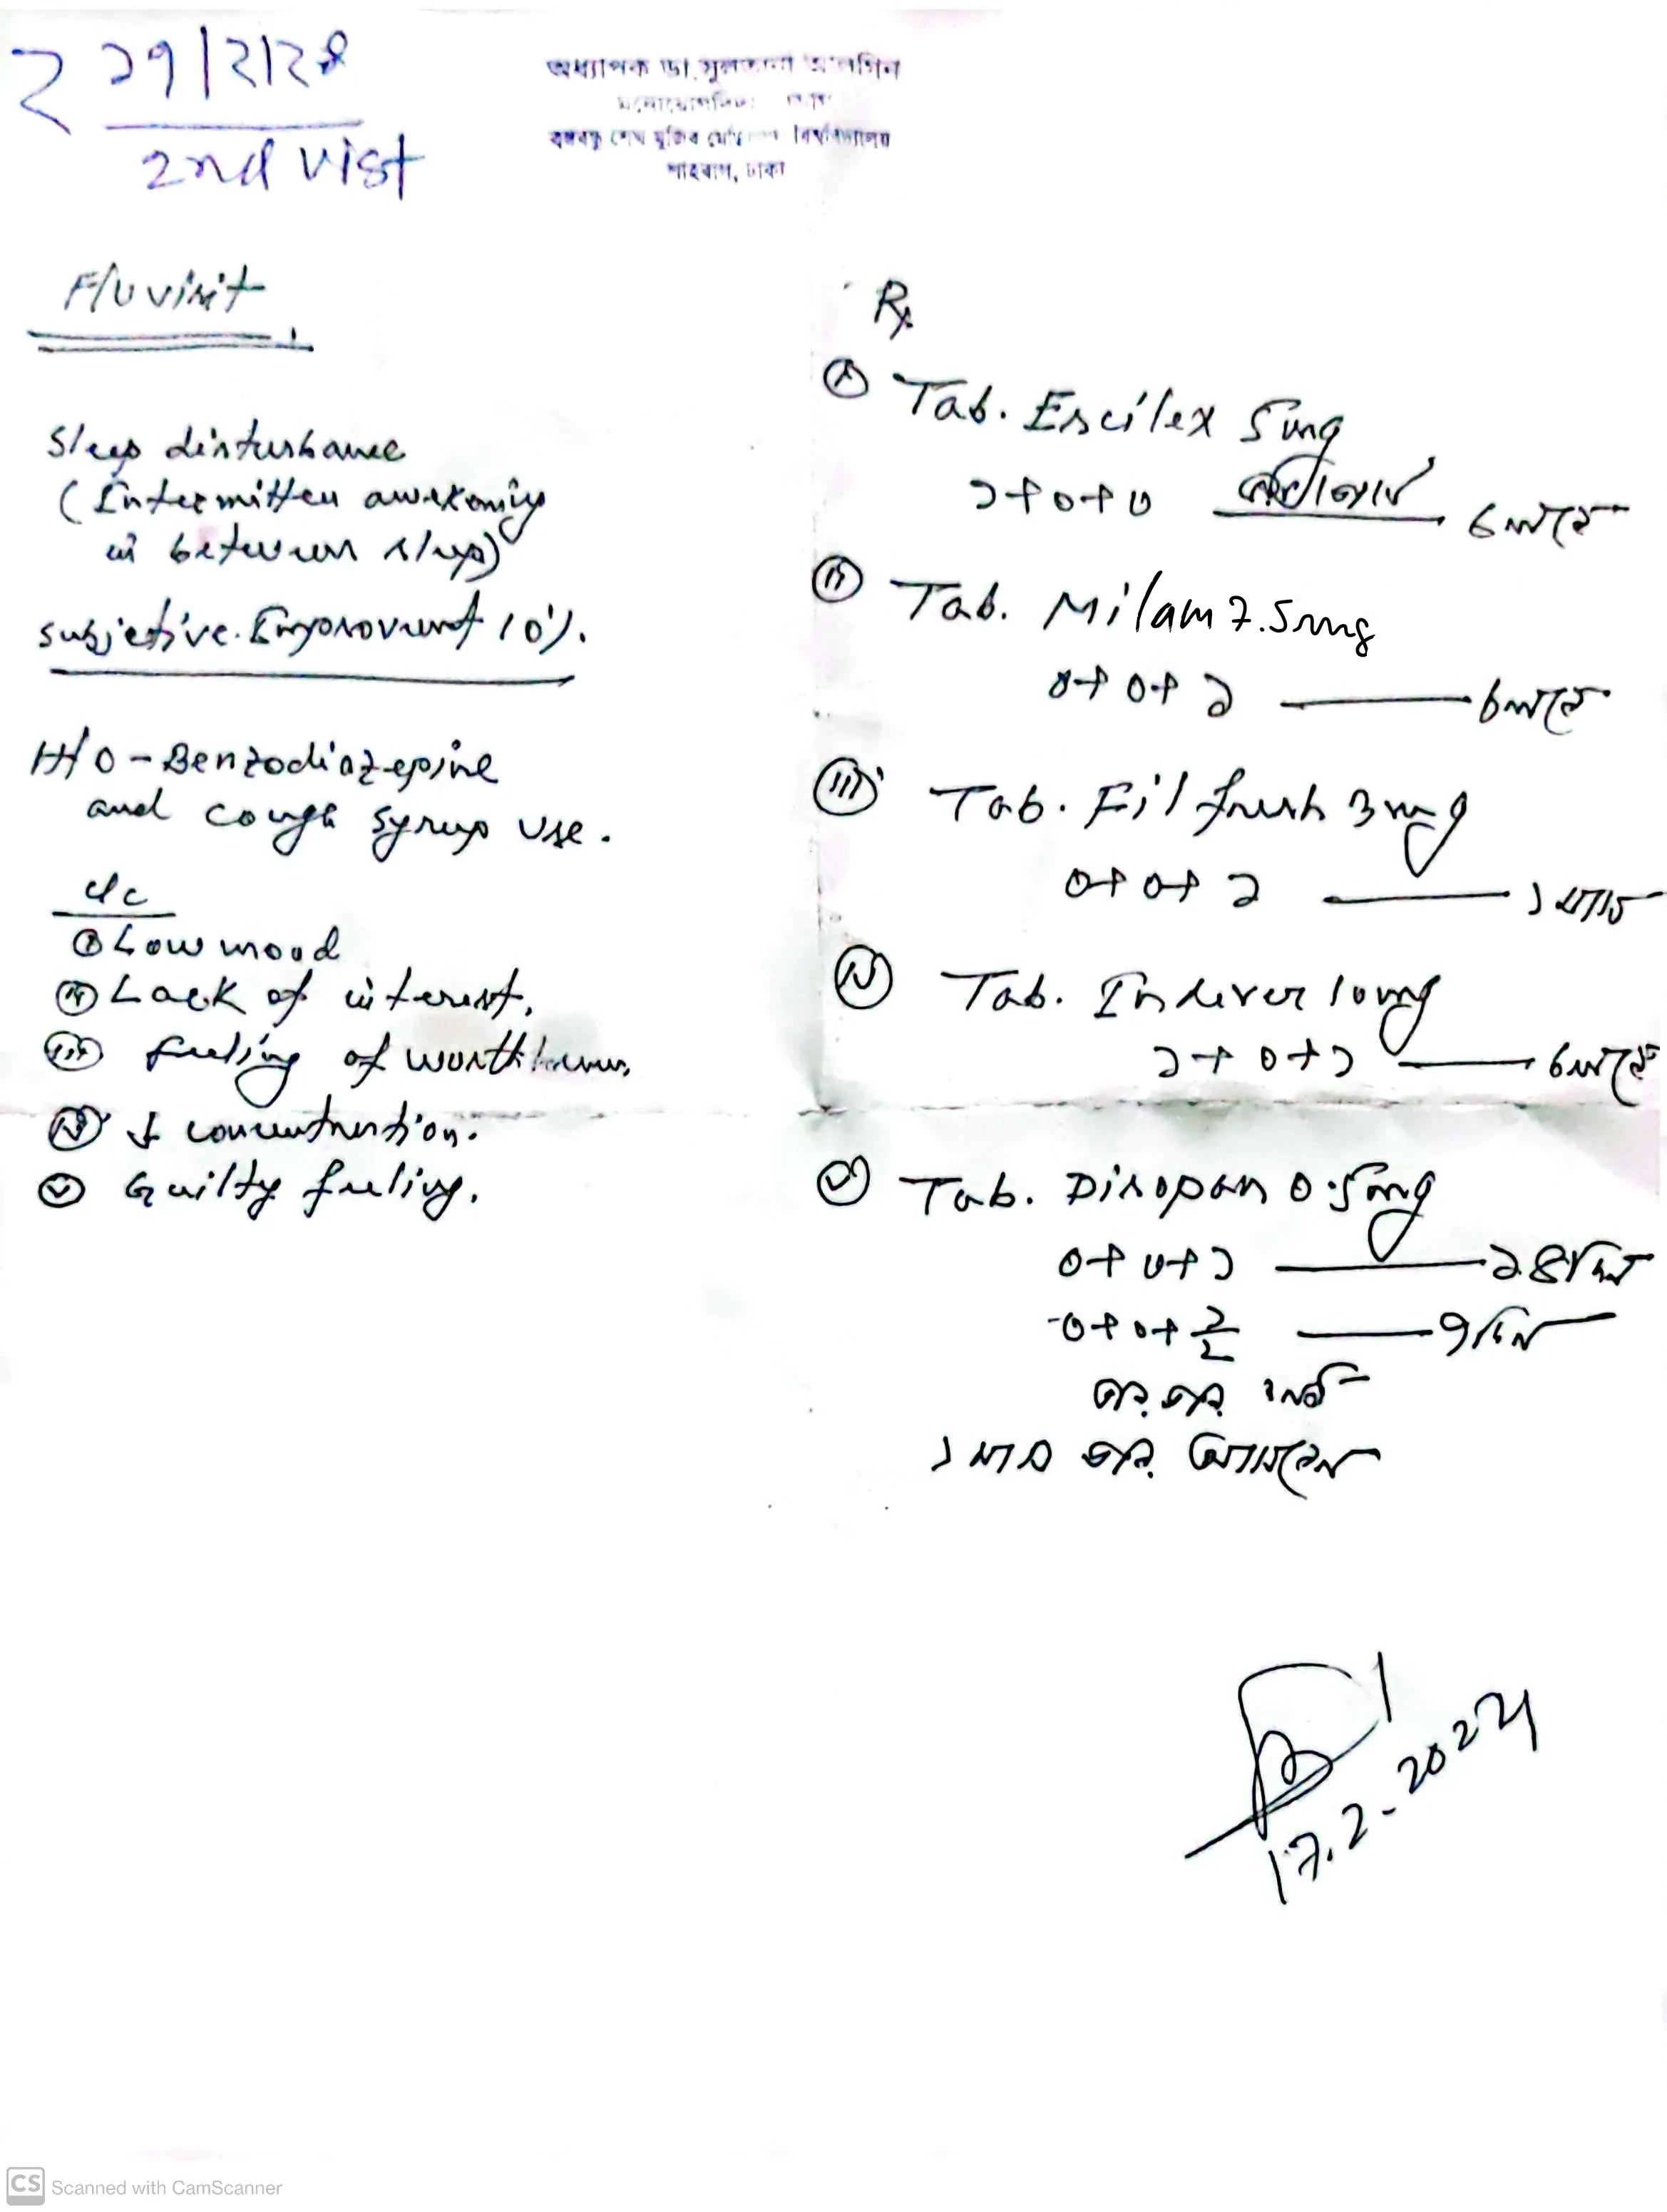 ২ ১৭/২/২৪
2nd vist
অধ্যাপক ডা. সুলতানা আলগিন
শাহবাগ, ঢাকা
F/U visit
Sleep disturbance
(Intermitten awakening
in between sleep)
Subjective Improvement 10%.
H/O - Benzodiazepine
and cough syrup use.
c/c
(i) Low mood
(ii) Lack of interest,
(iii) feeling of worthlessness,
(iv) ↓ concentration.
(v) Guilty feeling.
Rx
(i) Tab. Escilex 5mg
১+০+০ ৬ মাস
(ii) Tab. Milam 7.5mg
০+০+১ —— ৬ মাস
(iii) Tab. Filfresh 3mg
০+০+১ —— ১ মাস
(iv) Tab. Indever 10mg
১+০+১ —— ৬ মাস
(v) Tab. Disopan 0.5mg
০+০+১ —— ১৪ দিন
০+০+১/২ —— ৭ দিন
১ মাস পর আসবেন
17.2-2024
CS Scanned with CamScanner